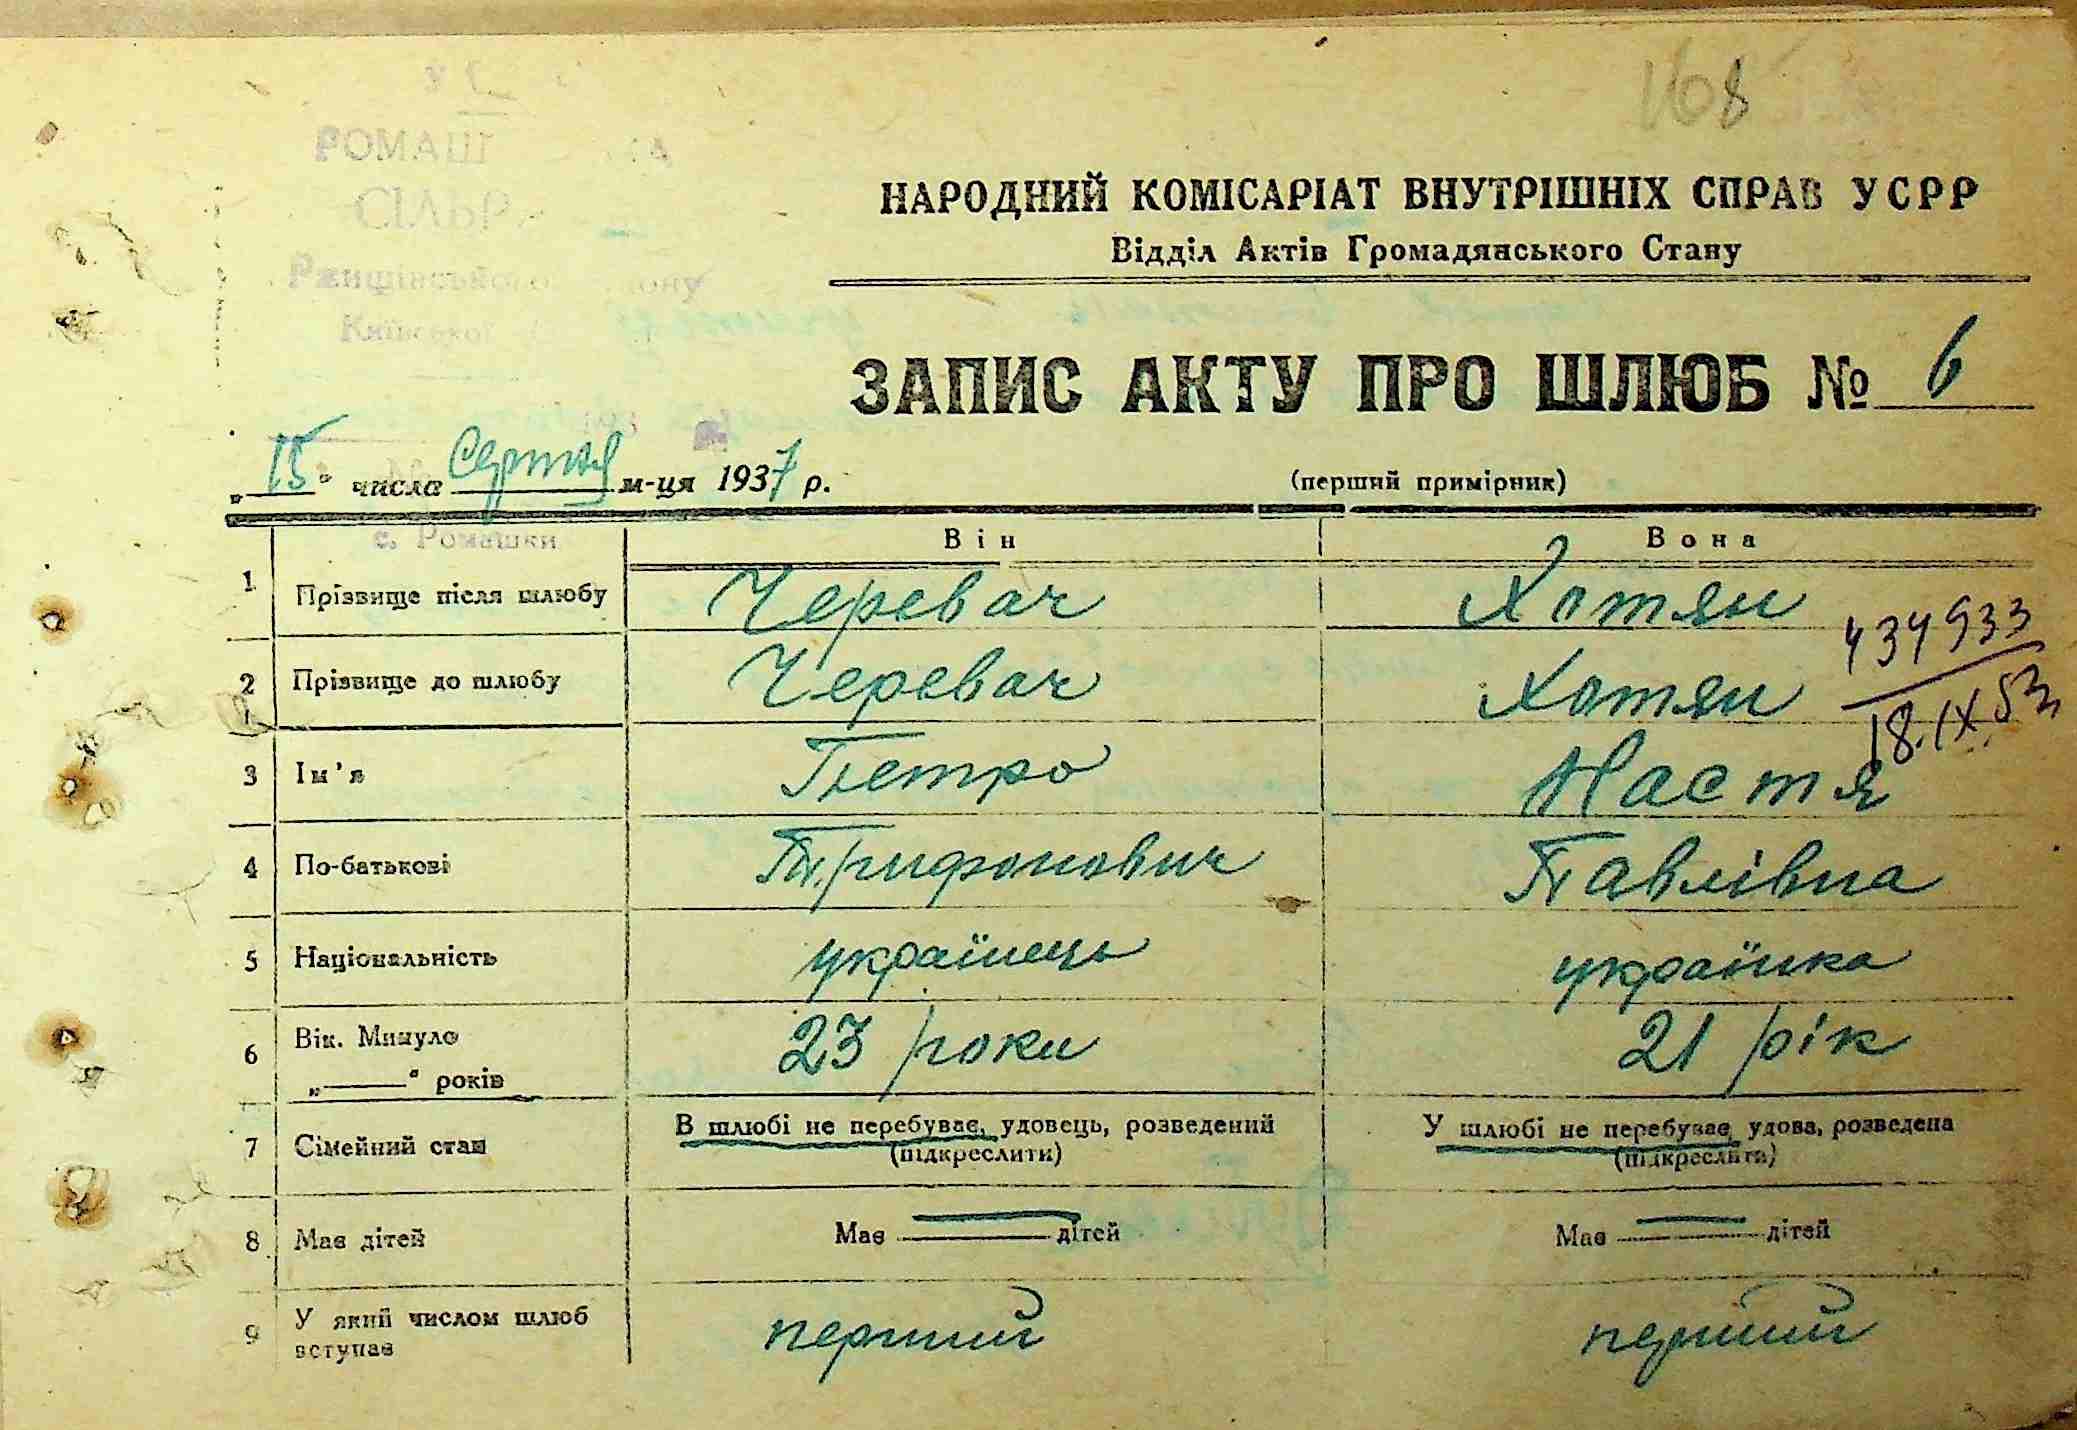 168
РОМАШ
СІЛЬР
Ржищівського
Київської
НАРОДНИЙ КОМІСАРІАТ ВНУТРІШНІХ СПРАВ УСРР
Відділ Актів Громадянського Стану
ЗАПИС АКТУ ПРО ШЛЮБ № 6
„15" числа Серпня м-ця 1937 р.
(перший примірник)
с. Ромашки
Він Вона
1 Прізвище після шлюбу Черевач Хотян
434933
2 Прізвище до шлюбу Черевач Хотян
18.IX.53
3 Ім'я Петро Настя
4 По-батькові Трифонович Павлівна
5 Національність українець українка
6 Вік. Минуло „——" років 23 роки 21 рік
7 Сімейний стан В шлюбі не перебуває, удовець, розведений У шлюбі не перебуває, удова, розведена
(підкреслити) (підкреслити)
8 Має дітей Має —— дітей Має —— дітей
9 У який числом шлюб перший перший
вступає